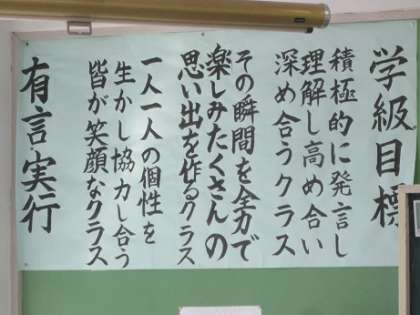 学級目標
積極的に発言し
理解し高め合い
深め合うクラス
その瞬間を全力で
楽しみたくさんの
思い出を作るクラス
一人一人の個性を
生かし協力し合う
皆が笑顔なクラス
有言実行